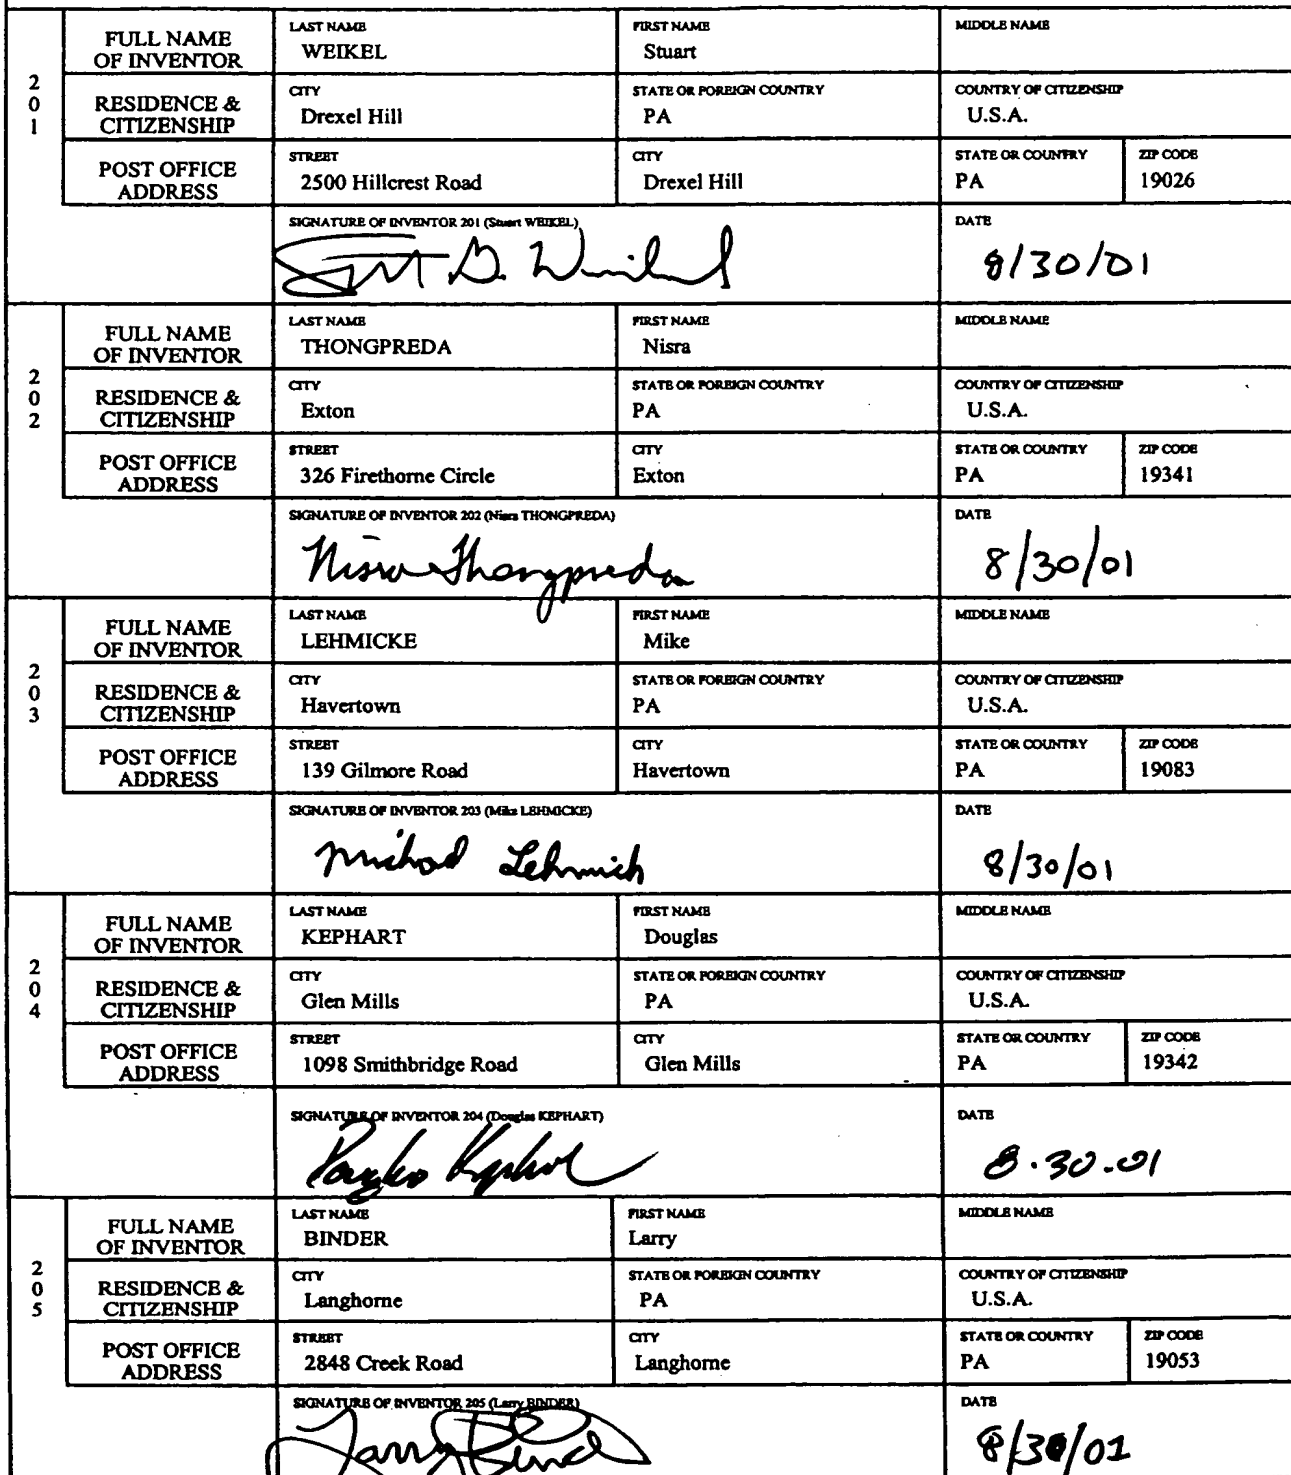 FULL NAME OF INVENTOR
LAST NAME
WEIKEL
FIRST NAME
Stuart
MIDDLE NAME
201
RESIDENCE & CITIZENSHIP
CITY
Drexel Hill
STATE OR FOREIGN COUNTRY
PA
COUNTRY OF CITIZENSHIP
U.S.A.
POST OFFICE ADDRESS
STREET
2500 Hillcrest Road
CITY
Drexel Hill
STATE OR COUNTRY
PA
ZIP CODE
19026
SIGNATURE OF INVENTOR 201 (Stuart WEIKEL)
DATE
8/30/01
FULL NAME OF INVENTOR
LAST NAME
THONGPREDA
FIRST NAME
Nisra
MIDDLE NAME
202
RESIDENCE & CITIZENSHIP
CITY
Exton
STATE OR FOREIGN COUNTRY
PA
COUNTRY OF CITIZENSHIP
U.S.A.
POST OFFICE ADDRESS
STREET
326 Firethorne Circle
CITY
Exton
STATE OR COUNTRY
PA
ZIP CODE
19341
SIGNATURE OF INVENTOR 202 (Nisra THONGPREDA)
Nisra Thongpreda
DATE
8/30/01
FULL NAME OF INVENTOR
LAST NAME
LEHMICKE
FIRST NAME
Mike
MIDDLE NAME
203
RESIDENCE & CITIZENSHIP
CITY
Havertown
STATE OR FOREIGN COUNTRY
PA
COUNTRY OF CITIZENSHIP
U.S.A.
POST OFFICE ADDRESS
STREET
139 Gilmore Road
CITY
Havertown
STATE OR COUNTRY
PA
ZIP CODE
19083
SIGNATURE OF INVENTOR 203 (Mike LEHMICKE)
DATE
8/30/01
FULL NAME OF INVENTOR
LAST NAME
KEPHART
FIRST NAME
Douglas
MIDDLE NAME
204
RESIDENCE & CITIZENSHIP
CITY
Glen Mills
STATE OR FOREIGN COUNTRY
PA
COUNTRY OF CITIZENSHIP
U.S.A.
POST OFFICE ADDRESS
STREET
1098 Smithbridge Road
CITY
Glen Mills
STATE OR COUNTRY
PA
ZIP CODE
19342
SIGNATURE OF INVENTOR 204 (Douglas KEPHART)
DATE
8.30.01
FULL NAME OF INVENTOR
LAST NAME
BINDER
FIRST NAME
Larry
MIDDLE NAME
205
RESIDENCE & CITIZENSHIP
CITY
Langhorne
STATE OR FOREIGN COUNTRY
PA
COUNTRY OF CITIZENSHIP
U.S.A.
POST OFFICE ADDRESS
STREET
2848 Creek Road
CITY
Langhorne
STATE OR COUNTRY
PA
ZIP CODE
19053
SIGNATURE OF INVENTOR 205 (Larry BINDER)
DATE
8/30/01